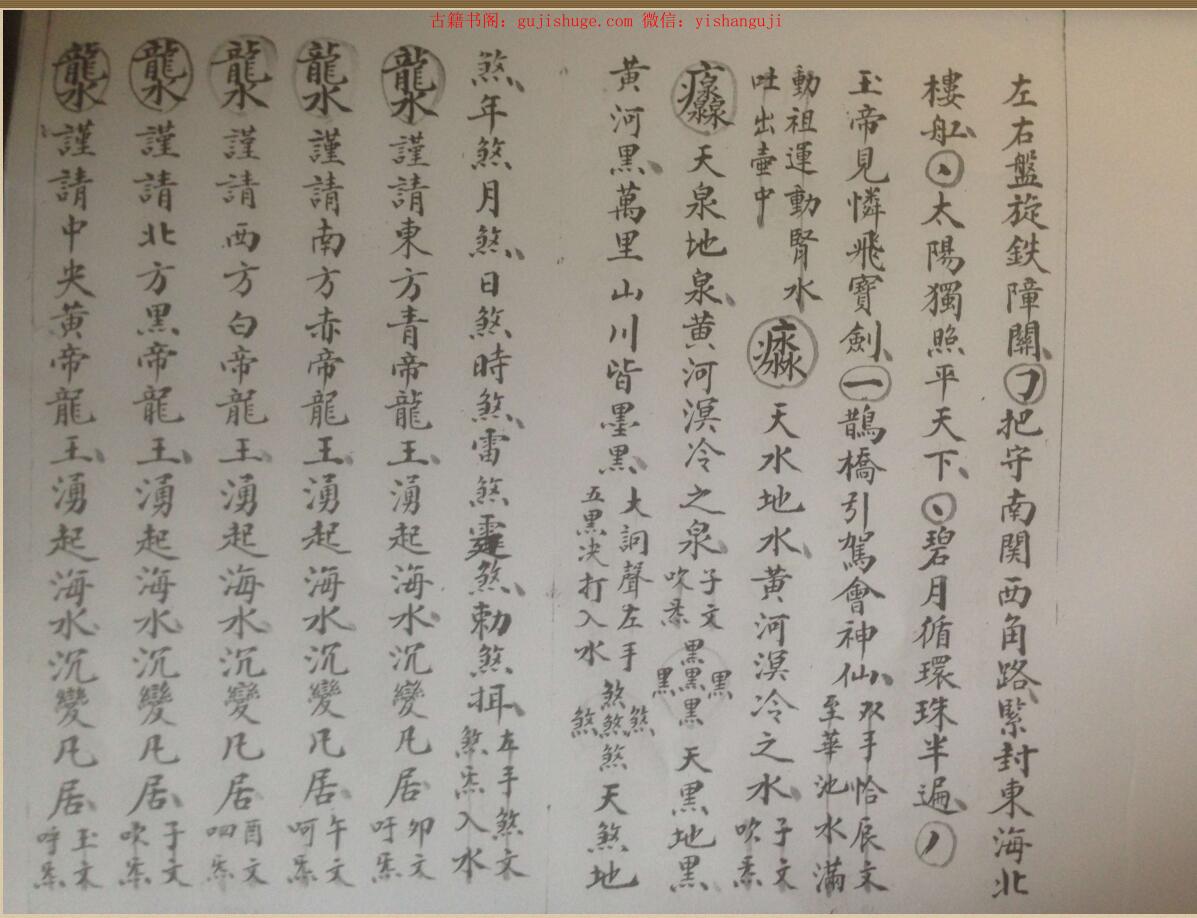 古籍书阁：gujishuge.com 微信：yishanguji
左右盤旋鉄障關、㇆把守南関西角路、緊封東海北
樓舡、丶太陽獨照平天下、丶碧月循環珠半遍、丿
玉帝見憐飛寶劍、一鵲橋引駕會神仙、双手恰辰文至華池水滿
動祖運動腎水吐出壺中 天水地水、黄河溟冷之水、子文吹炁
天泉地泉、黄河溟冷之泉、子文吹炁 黑黑黑黑黑 天黑地黑、
黄河黑、萬里山川皆墨黑、大訶聲左手五黑决打入水 煞煞煞煞煞 天煞地
煞、年煞月煞、日煞時煞、雷煞霆煞、勅煞挕、左手煞文煞炁入水
龍水 謹請東方青帝龍王、湧起海水、沉變凡居、卯文吁炁
龍水 謹請南方赤帝龍王、湧起海水、沉變凡居、午文呵炁
龍水 謹請西方白帝龍王、湧起海水、沉變凡居 酉文呬炁
龍水 謹請北方黑帝龍王、湧起海水、沉變凡居、子文吹炁
龍水 謹請中央黄帝龍王、湧起海水、沉變凡居、玉文呼炁